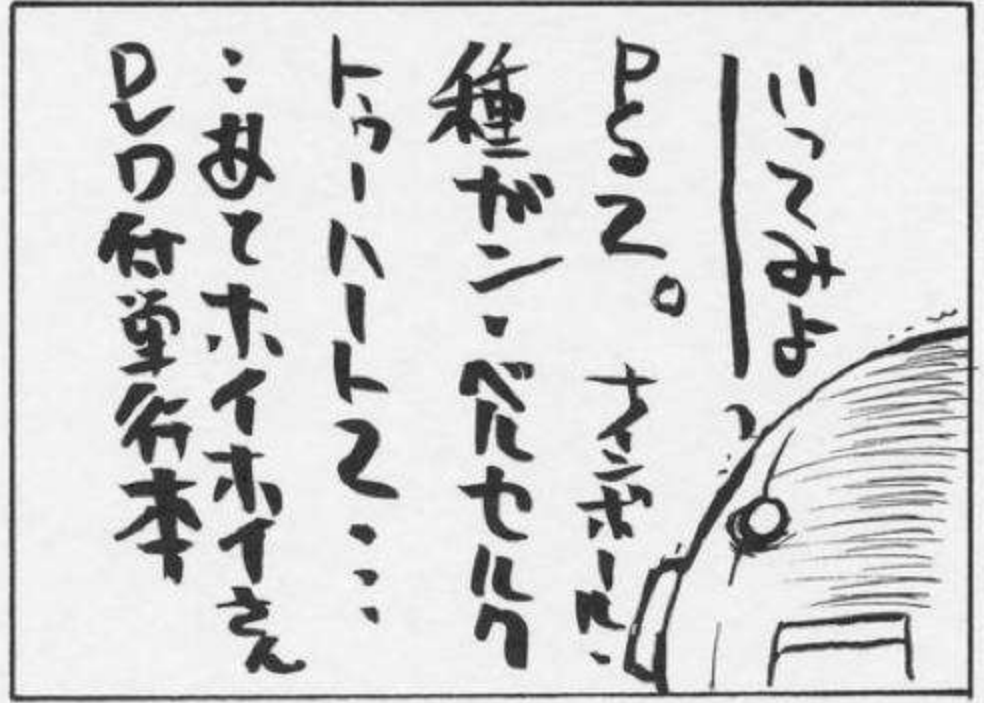 いってみよ
ーっ
PS2。ナインボール・
種ガン・ベルセルク
トゥーハート2…
…あとホイホイさん
Dレワ付単行本